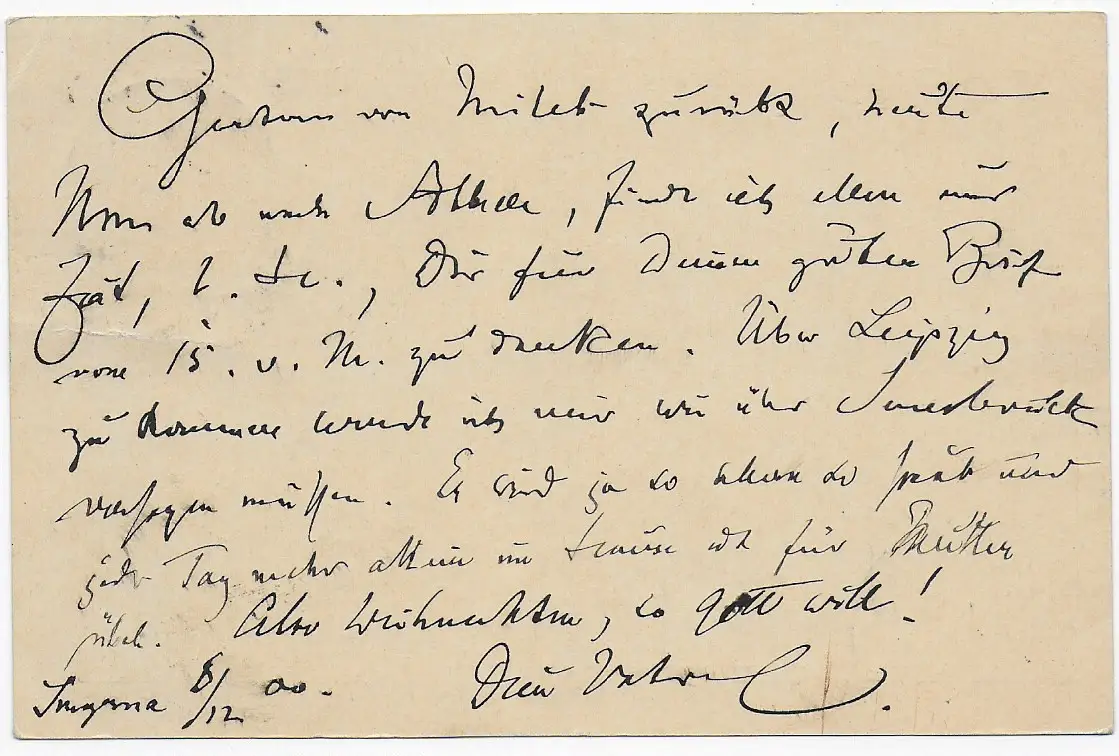 Gestern von Milet zurück, heute
Abend ab nach Athen, finde ich eben nur
Zeit, l. H., Dir für Deinen guten Brief
vom 15. v. M. zu danken. Über Leipzig
zu kommen werde ich mir wie über Innsbruck
versagen müssen. Es wird ja so schon so spät und
jeder Tag mehr allein im Hause ist für Mutter
übel. Also Weihnachten, so Gott will!
Smyrna 8/12 00. Dein Vater C.